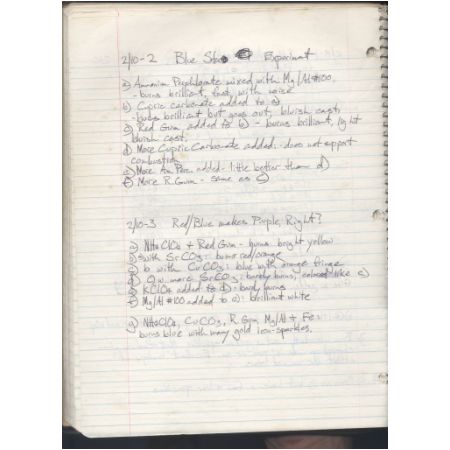 2/10-2 Blue Star Experiment
a) Ammonium Perchlorate mixed with Mg/Al #100.
- burns brilliant, fast, with noise
b) Cupric carbonate added to a)
- burns brilliant but goes out, bluish cast
c) Red Gum added to b) - burns brilliant, light
bluish cast.
d) More Cupric Carbonate added: does not support
combustion
e) More Am. Perc. added - little better than d)
f) More R. Gum - same as c)
2/10-3 Red/Blue makes Purple, Right?
a) NH4ClO4 + Red Gum - burns bright yellow
b) with SrCO3: burns red/orange
c) b with CuCO3: blue with orange fringe
d) c w. more SrCO3: barely burns, colored like c)
e) KClO4 added to d): barely burns
f) Mg/Al #100 added to e): brilliant white
g) NH4ClO4, CuCO3, R. Gum, Mg/Al + Fe
burns blue with many gold iron-sparkles.